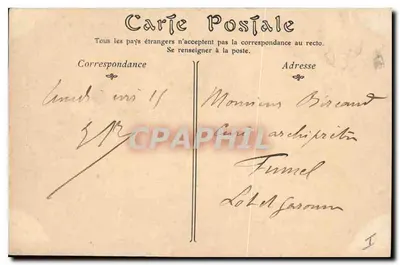 Carte Postale
Tous les pays étrangers n'acceptent pas la correspondance au recto.
Se renseigner à la poste.
Correspondance
Adresse
lundi 15
Monsieur
Curé archiprêtre
Fumel
Lot et Garonne
CPAPHIL
I